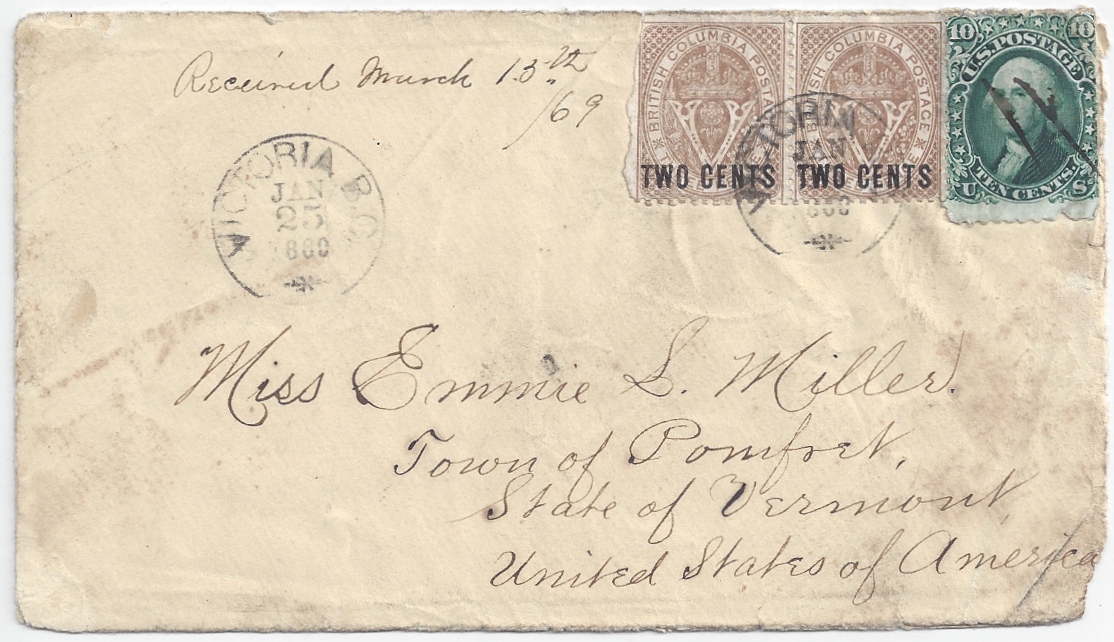 Received March 13th
/69
BRITISH COLUMBIA POSTAGE
TWO CENTS
BRITISH COLUMBIA POSTAGE
TWO CENTS
10 10
U.S. POSTAGE
TEN CENTS
U S
VICTORIA B.C.
JAN
25
1869
VICTORIA
JAN
Miss Emmie L. Miller.
Town of Pomfret,
State of Vermont,
United States of America